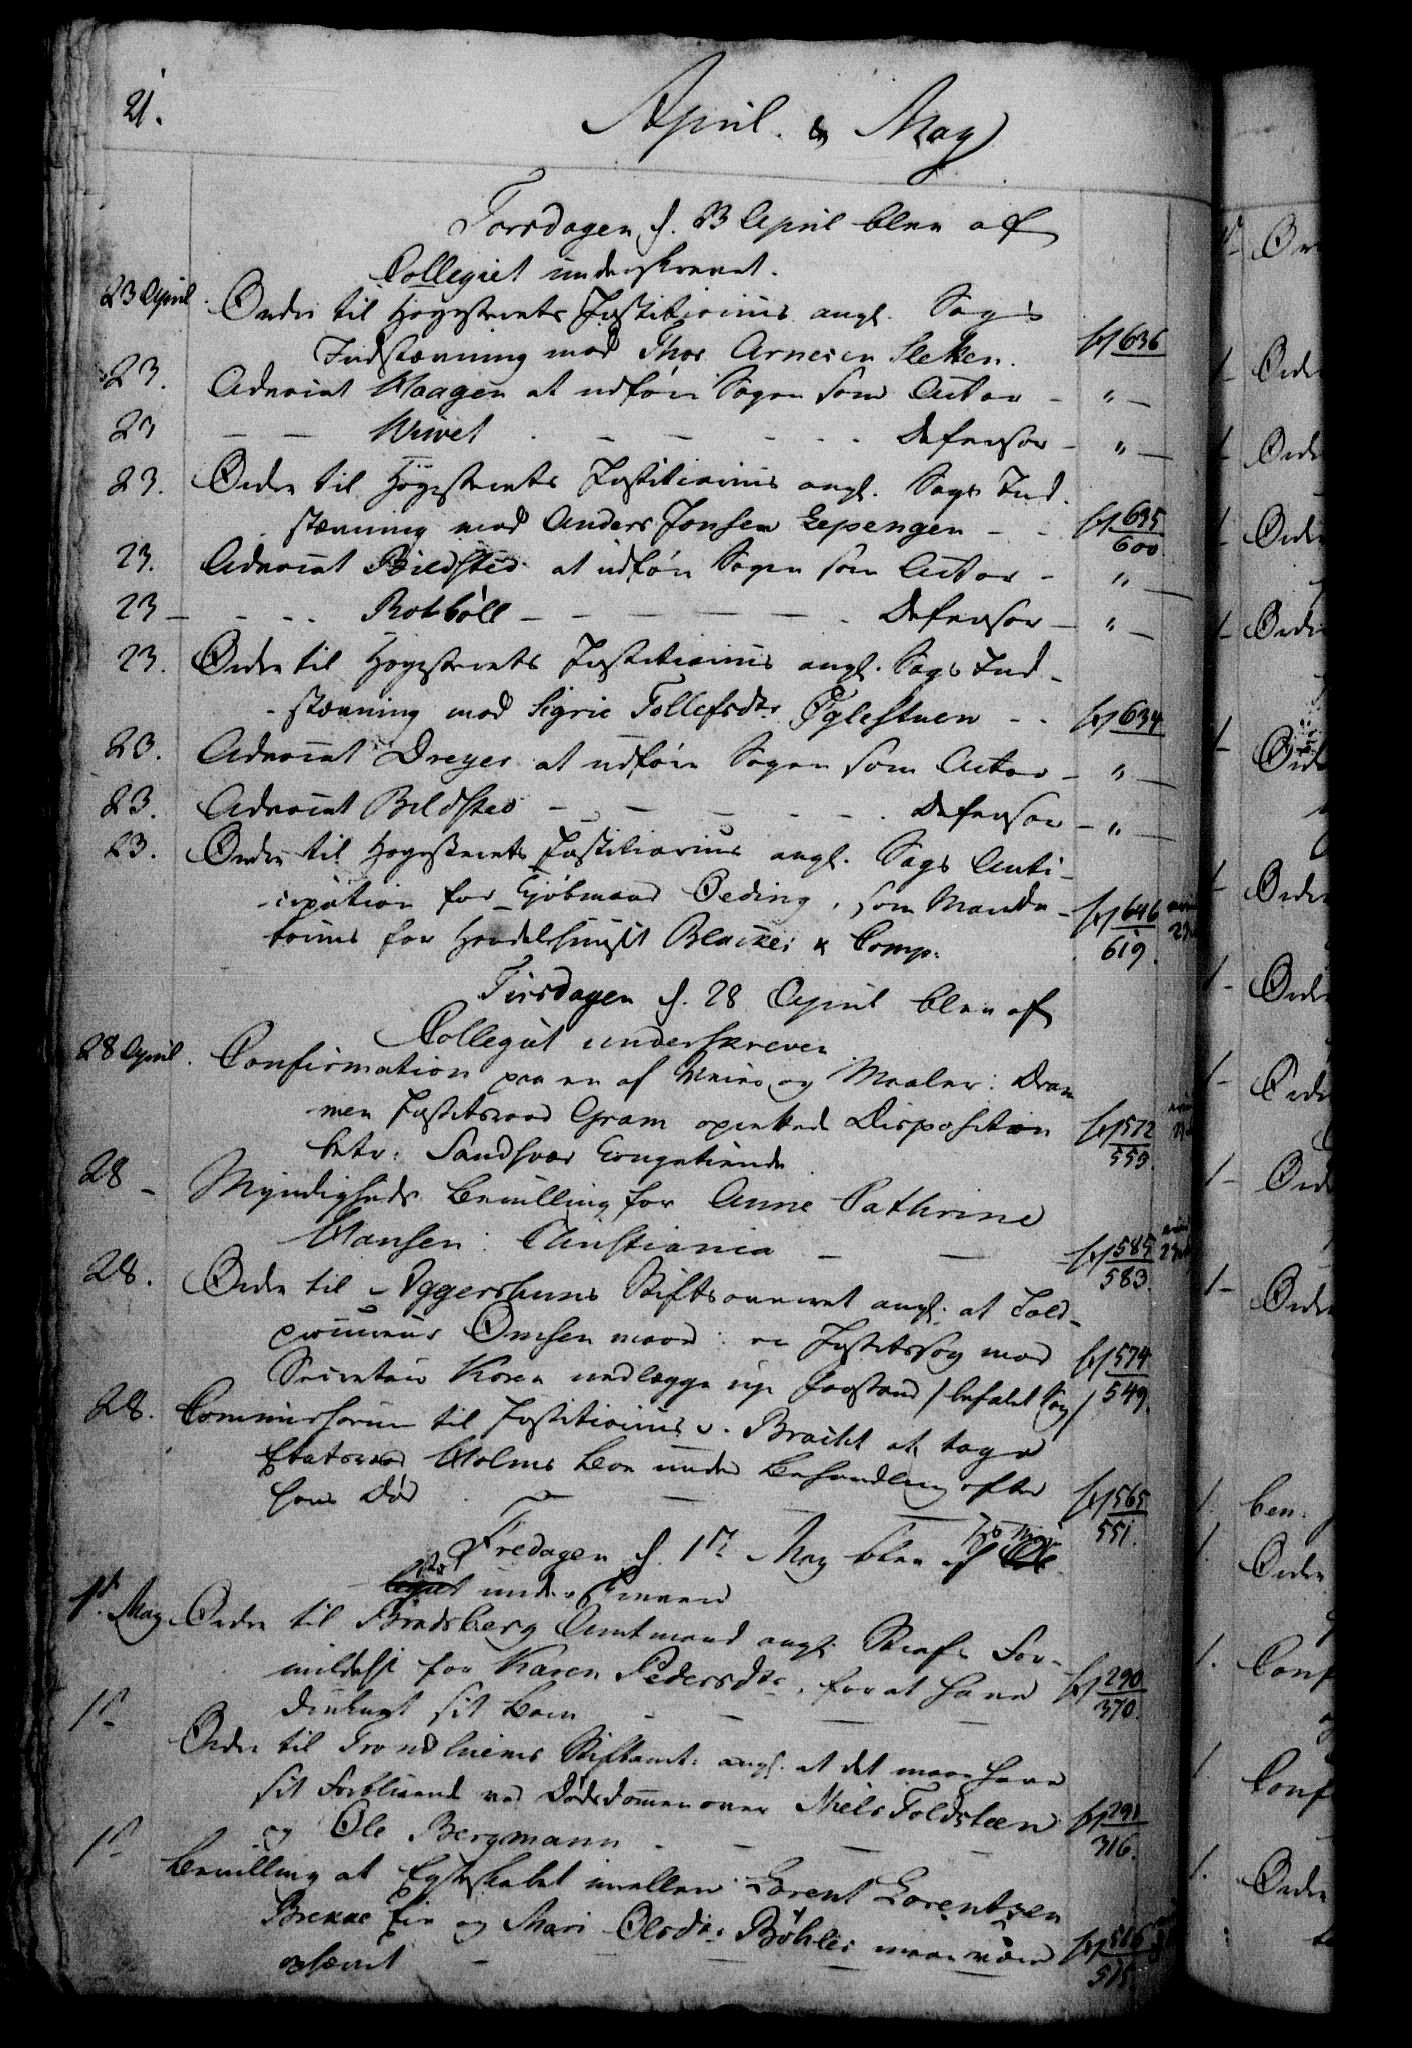 21.
April & May
Torsdagen d. 23 April blev af
Collegiet underskrevet.
23 April. Ordre til Høyesterets Justitiarius angl. Sags
Indstævning mod Thor Arnesen Sletten. 636
23. Advocat Haagen at udføre Sagen som Actor - " -
23 - - Wivet - - - Defensor - " -
23. Ordre til Høyesterets Justitiarius angl. Sags Ind-
stævning mod Anders Jonsen Eepengen - - 635/600
23. Advocat Bildsted at udføre Sagen som Actor - " -
23 - - - Rotbøll - - - Defensor - " -
23. Ordre til Høyesterets Justitiarius angl. Sags Ind-
stævning mod Sigrie Tollefsdtr Øglestuen - - 634
23. Advocat Dreyer at udføre Sagen som Actor - " -
23. Advocat Bildsted - - - Defensor - " -
23. Ordre til Høyesterets Justitiarius angl. Sags Anti-
cipation for Kjøbmand Oeding, som Manda- 646
tarius for Handelshuuset Blacker & Comp. 619.
Tirsdagen d. 28 April blev af
Collegiet underskreven
28 April. Confirmation paa en af Veier og Maaler i Dram
men Justitsraad Gram oprettede Disposition 572
betr: Sandsvær Kongetiende 553.
28 - Myndigheds Bevilling for Anne Cathrine
Hansen i Christiania - - 585/583.
28. Ordre til Aggershuus Stiftsoverret angl. at Told-
procureur Omsen maae i en Justitssag mod 574
Secretair Koren nedlægge nye Paastand / befalet Sag / 549.
28. Commissorium til Justitiarius v. Bracht at tage
Etatsraad Holms Boe under Behandling efter 565
hans Død - - 551.
Fredagen d. 1ste May blev
underskreven
1ste May Ordre til Bradsberg Amtmand angl. Straffe For-
mildelse for Karen Pedersdtr, for at have 290
dræbt sit Barn - - 370.
1ste Ordre til Trondhiems Stiftamt: angl. at det maae have
sit Forblivende ved Dødsdommen over Niels Foldsteen 291
og Ole Bergmann - - 316.
1ste Bevilling at Egteskabet imellem Lorent Lorentzen
Brekke Eie og Mari Olsdtr Böhler maae være 516
ophævet - -